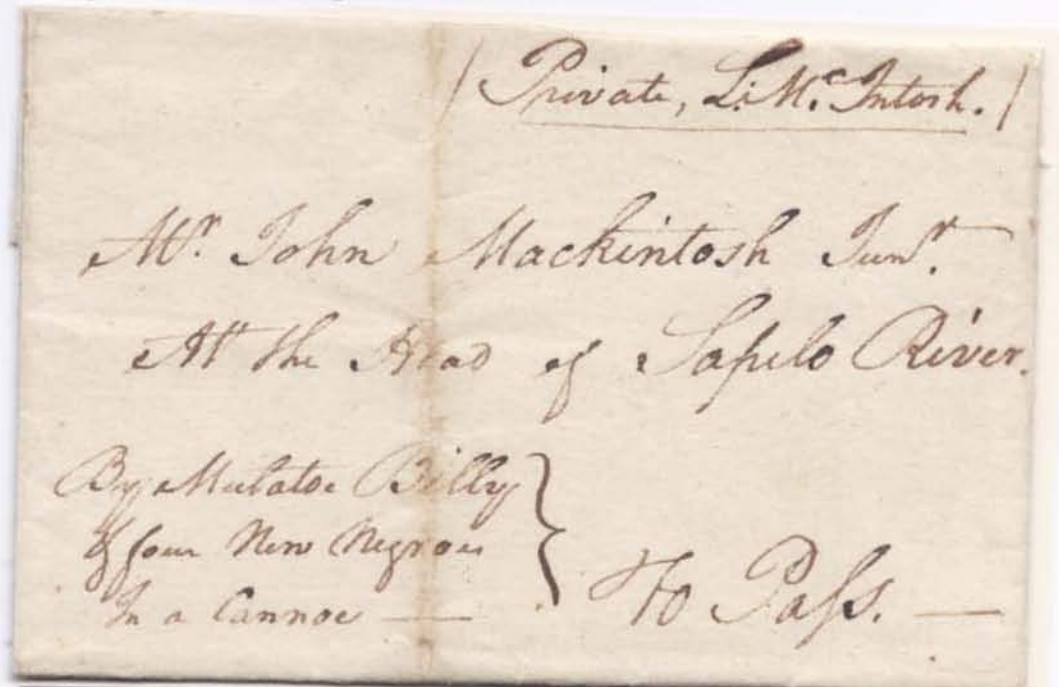 (Private, L: Mc.Intosh.)
Mr. John Mackintosh Junr.
At the Head of Sapelo River.
By Mulatoe Billy
& four New Negroes
In a Cannoe —
} To Pass. —